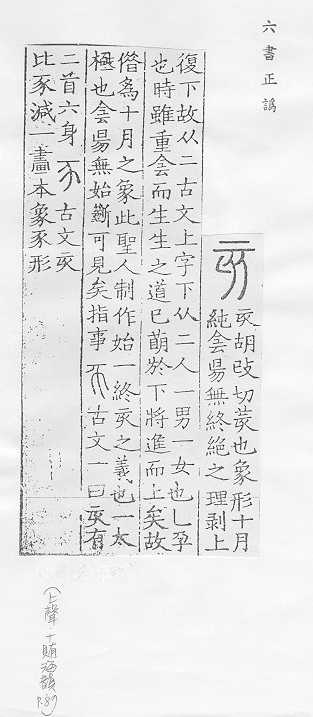 六書正譌
亥胡改切荄也象形十月
純侌昜無終絶之理剥上
復下故从二古文上字下从二人一男一女也乚孕
也時雖重侌而生生之道已萌於下將進而上矣故
僭爲十月之象此聖人制作始一終亥之義也一太
極也侌昜無始斷可見矣指事 古文一曰亥有
二首六身 古文亥
比豕減一畫本象豕形
(上聲十賄海韻
P.80)